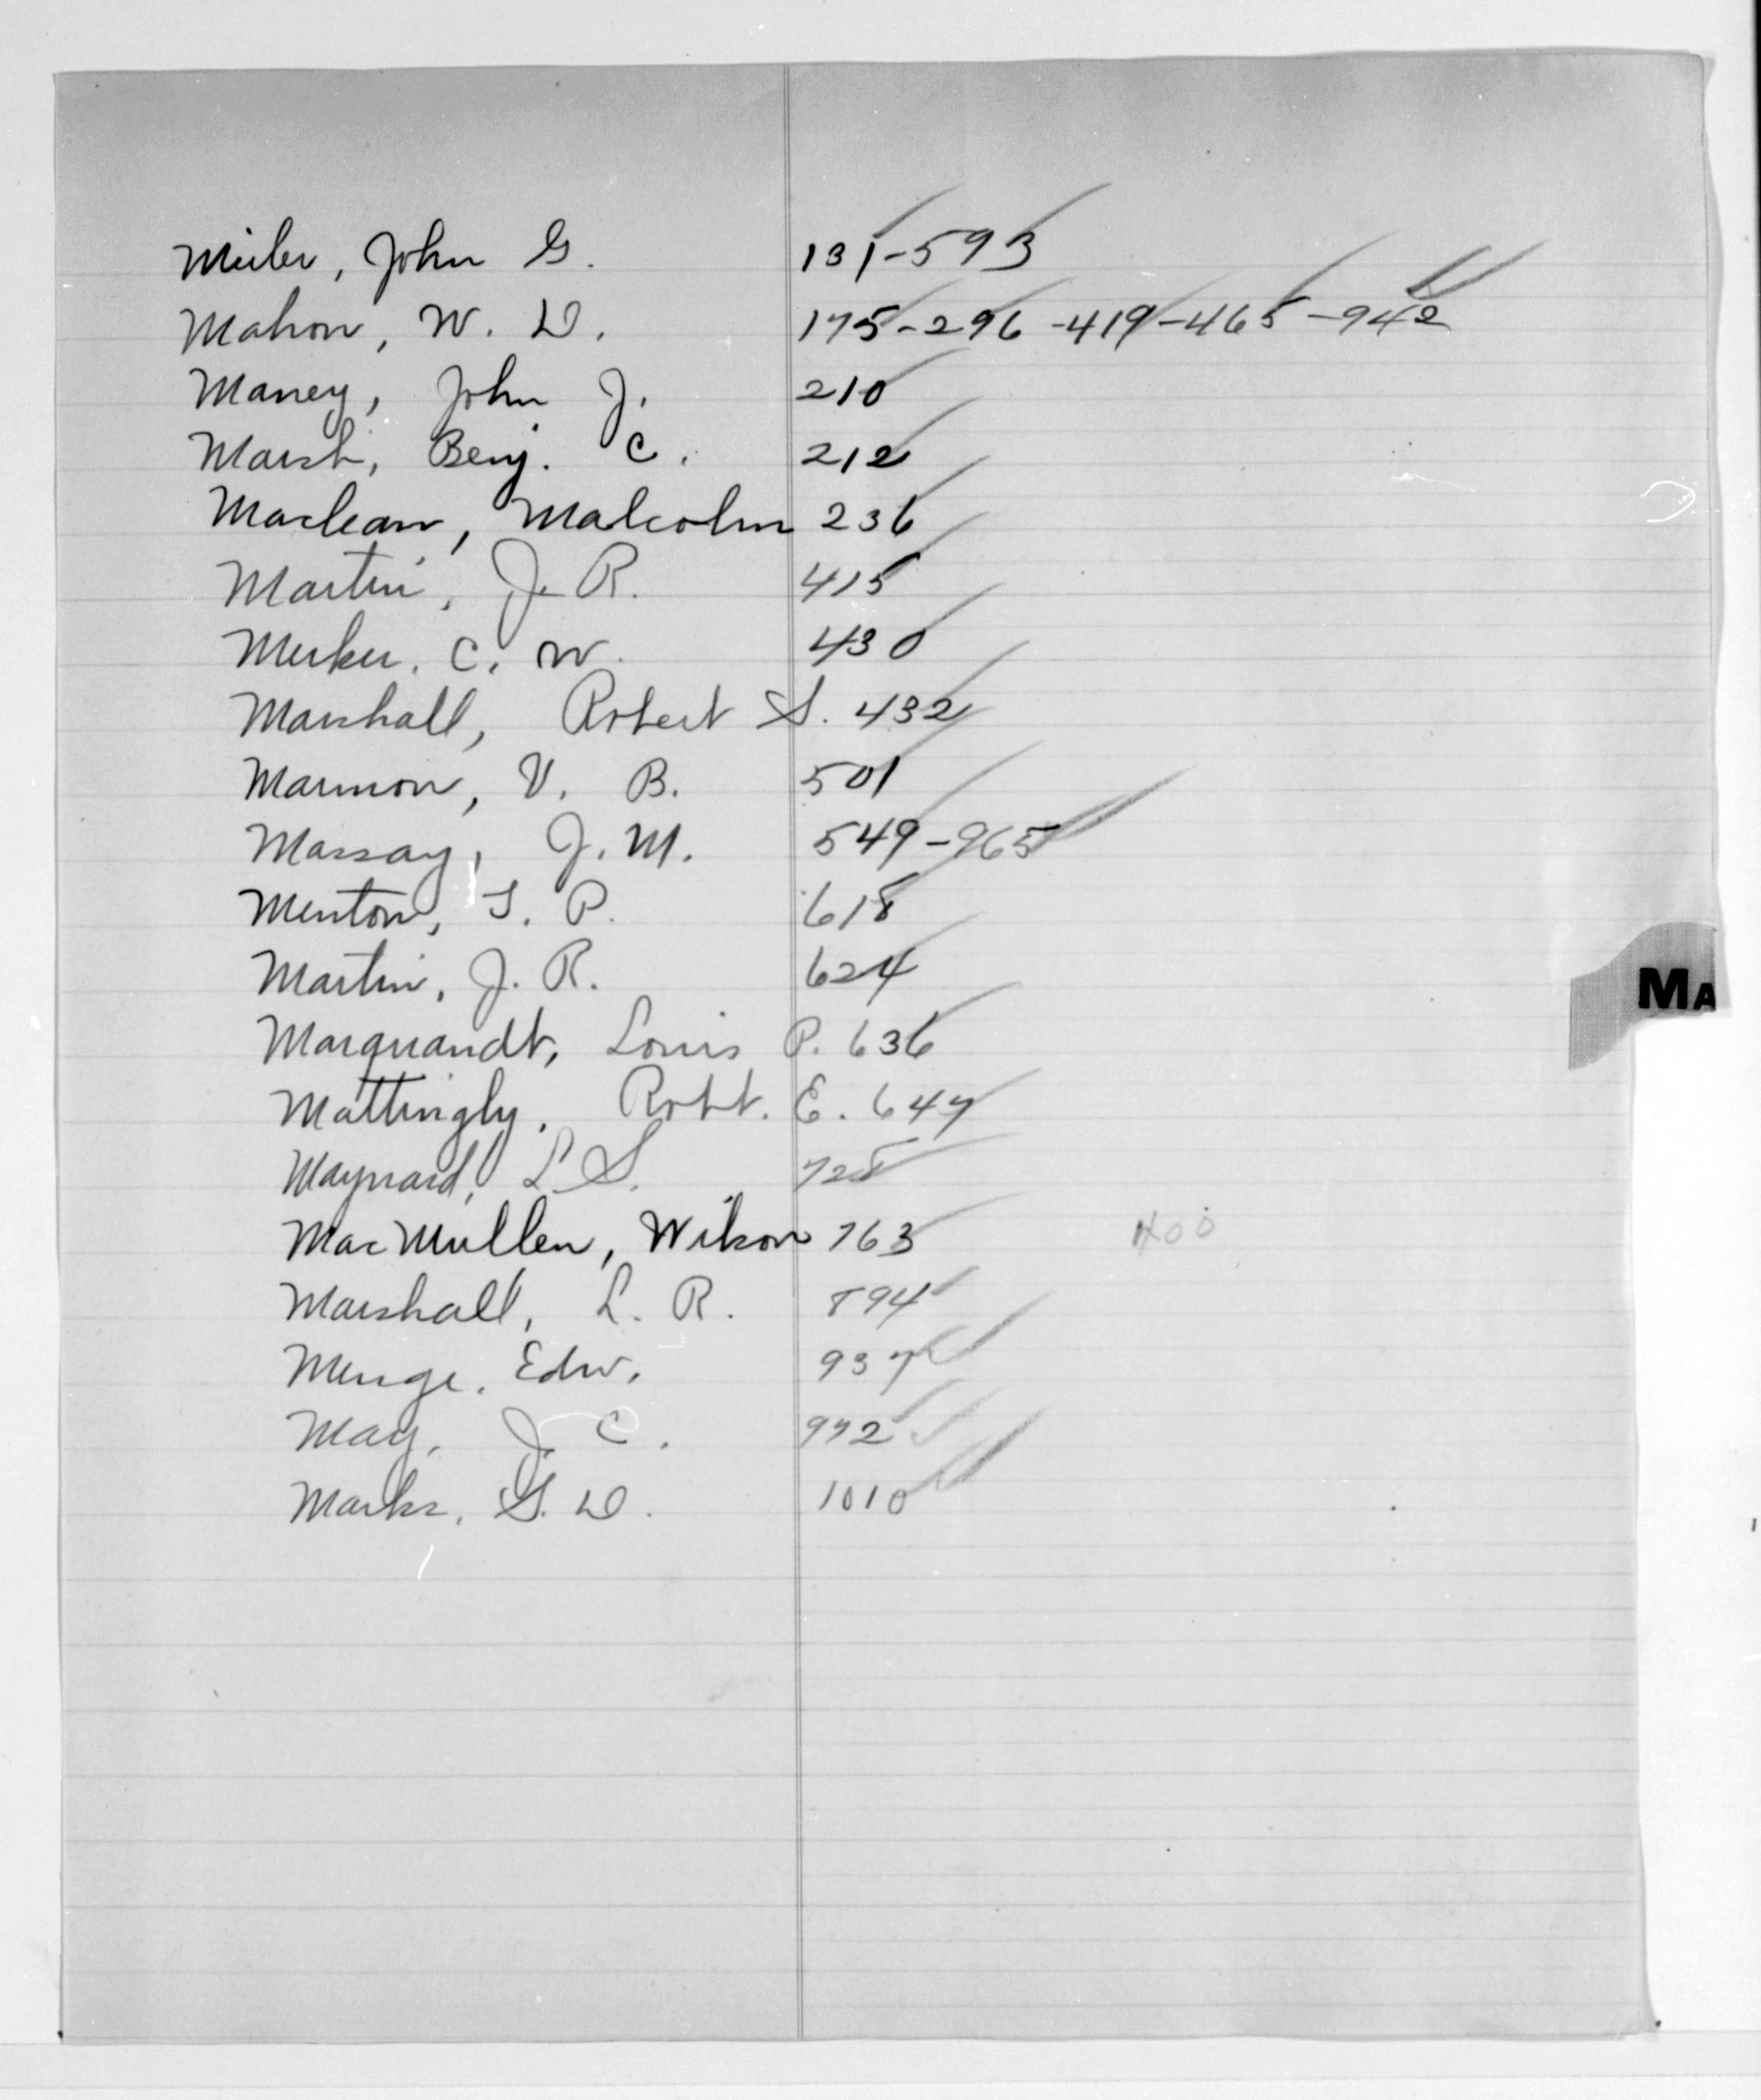 Meiler, John G. 131-593
Mahon, W. D. 175-296-419-465-942
Maney, John J. 210
Marsh, Benj. C. 212
Maclean, Malcolm 236
Martin, J. R. 415
Merker, C. W. 430
Marshall, Robert S. 432
Marmon, V. B. 501
Massay, J. M. 549-965
Menton, S. P. 618
Martin, J. R. 624
MA
Marquandt, Louis P. 636
Mattingly, Robt. E. 647
Maynard, L. S. 728
MacMullen, Wilson 763
400
Marshall, L. R. 894
Menge, Edw. 937
May, J. C. 972
Marks, S. D. 1010